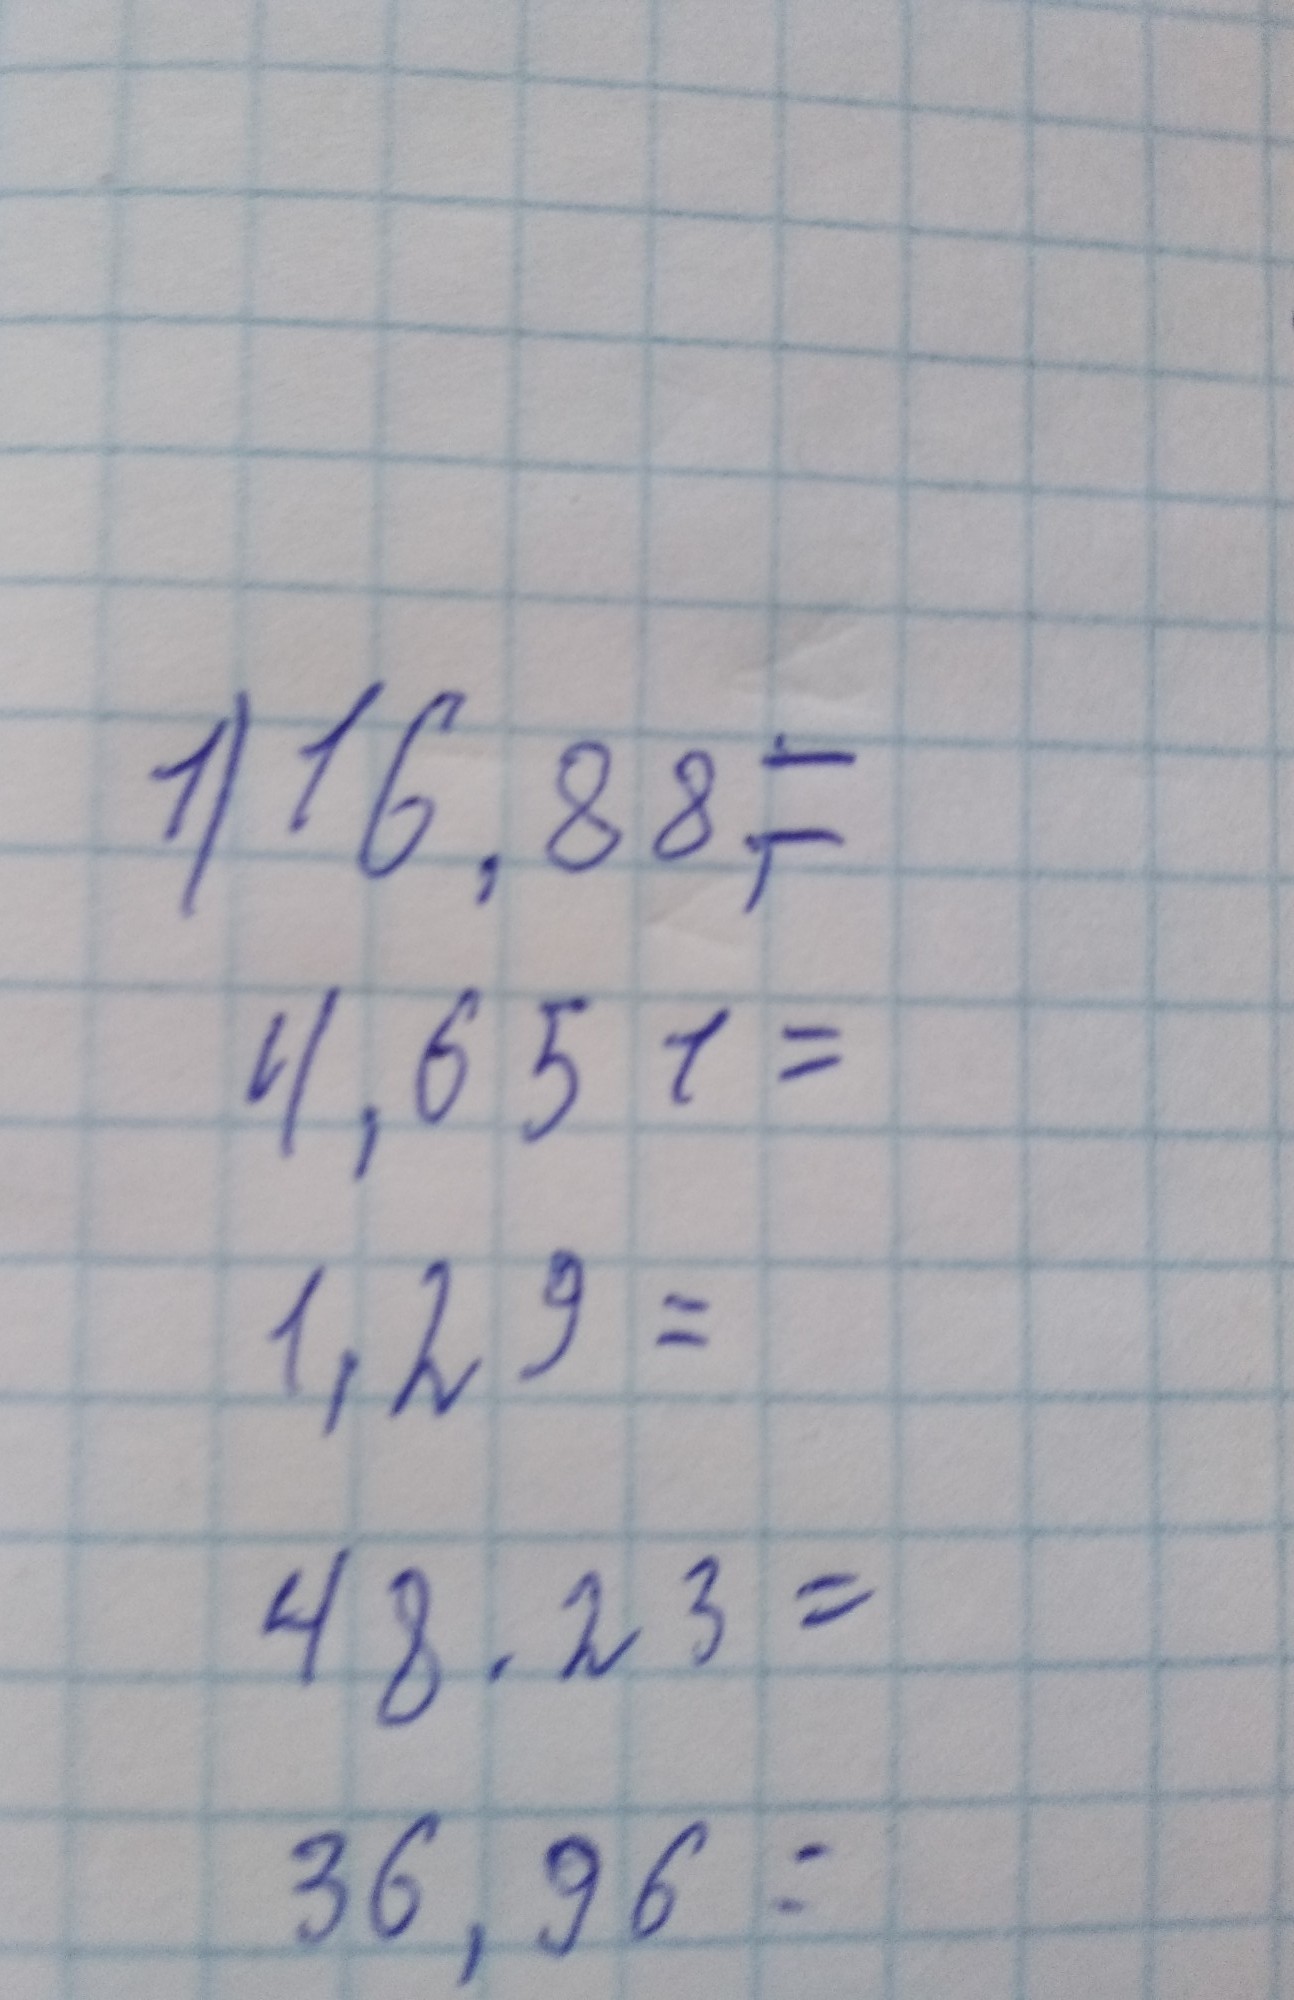 1) 16,88,=
4,651=
1,29=
48.23=
36,96=